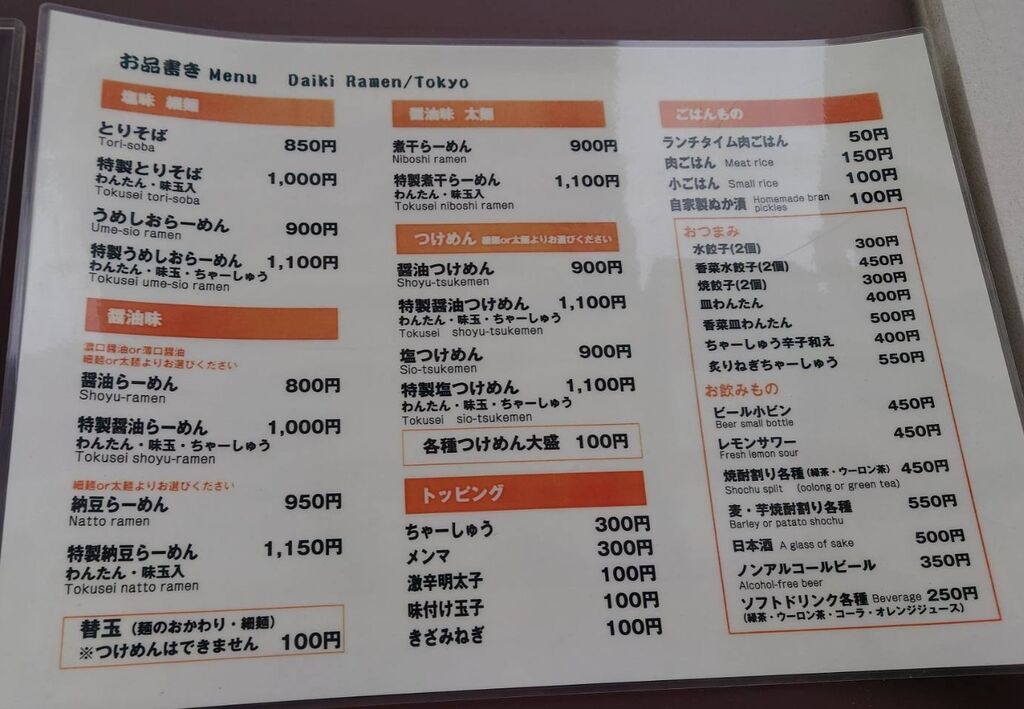 お品書き Menu Daiki Ramen/Tokyo
塩味 細麺
とりそば 850円
Tori-soba
特製とりそば 1,000円
わんたん・味玉入
Tokusei tori-soba
うめしおらーめん 900円
Ume-sio ramen
特製うめしおらーめん 1,100円
わんたん・味玉・ちゃーしゅう
Tokusei ume-sio ramen
醤油味
濃口醤油or薄口醤油
細麺or太麺よりお選びください
醤油らーめん 800円
Shoyu-ramen
特製醤油らーめん 1,000円
わんたん・味玉・ちゃーしゅう
Tokusei shoyu-ramen
細麺or太麺よりお選びください
納豆らーめん 950円
Natto ramen
特製納豆らーめん 1,150円
わんたん・味玉入
Tokusei natto ramen
替玉(麺のおかわり・細麺)
※つけめんはできません 100円
醤油味 太麺
煮干らーめん 900円
Niboshi ramen
特製煮干らーめん 1,100円
わんたん・味玉入
Tokusei niboshi ramen
つけめん 細麺or太麺よりお選びください
醤油つけめん 900円
Shoyu-tsukemen
特製醤油つけめん 1,100円
わんたん・味玉・ちゃーしゅう
Tokusei shoyu-tsukemen
塩つけめん 900円
Sio-tsukemen
特製塩つけめん 1,100円
わんたん・味玉・ちゃーしゅう
Tokusei sio-tsukemen
各種つけめん大盛 100円
トッピング
ちゃーしゅう 300円
メンマ 300円
激辛明太子 100円
味付け玉子 100円
きざみねぎ 100円
ごはんもの
ランチタイム肉ごはん 50円
肉ごはん Meat rice 150円
小ごはん Small rice 100円
自家製ぬか漬 Homemade bran pickles 100円
おつまみ
水餃子(2個) 300円
香菜水餃子(2個) 450円
焼餃子(2個) 300円
皿わんたん 400円
香菜皿わんたん 500円
ちゃーしゅう辛子和え 400円
炙りねぎちゃーしゅう 550円
お飲みもの
ビール小ビン 450円
Beer small bottle
レモンサワー 450円
Fresh lemon sour
焼酎割り各種(緑茶・ウーロン茶) 450円
Shochu split (oolong or green tea)
麦・芋焼酎割り各種 550円
Barley or patato shochu
日本酒 A glass of sake 500円
ノンアルコールビール 350円
Alcohol-free beer
ソフトドリンク各種 Beverage 250円
(緑茶・ウーロン茶・コーラ・オレンジジュース)